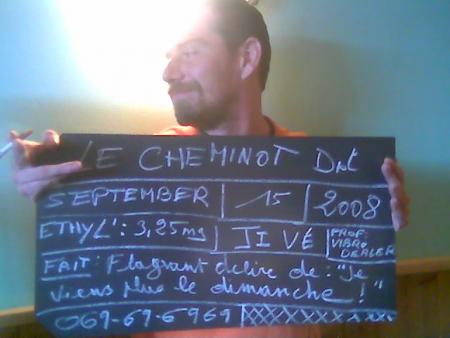 LE CHEMINOT Dnt
SEPTEMBER 15 2008
ETHYL': 3,25mg JI VÉ PROF: VIBRO DEALER
FAIT: Flagrant delire de: "Je
viens plus le dimanche!"
069-69-6969 XXXXXXXXXX